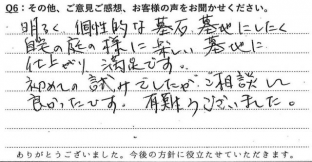 Q6：その他、ご意見ご感想、お客様の声をお聞かせください。
明るく、個性的な墓石、墓地にしたく
自宅の庭の様に楽しい墓地に
仕上がり満足です。
初めての試みでしたが、ご相談して
良かったです。有難うございました。
ありがとうございました。今後の方針に役立たせていただきます。